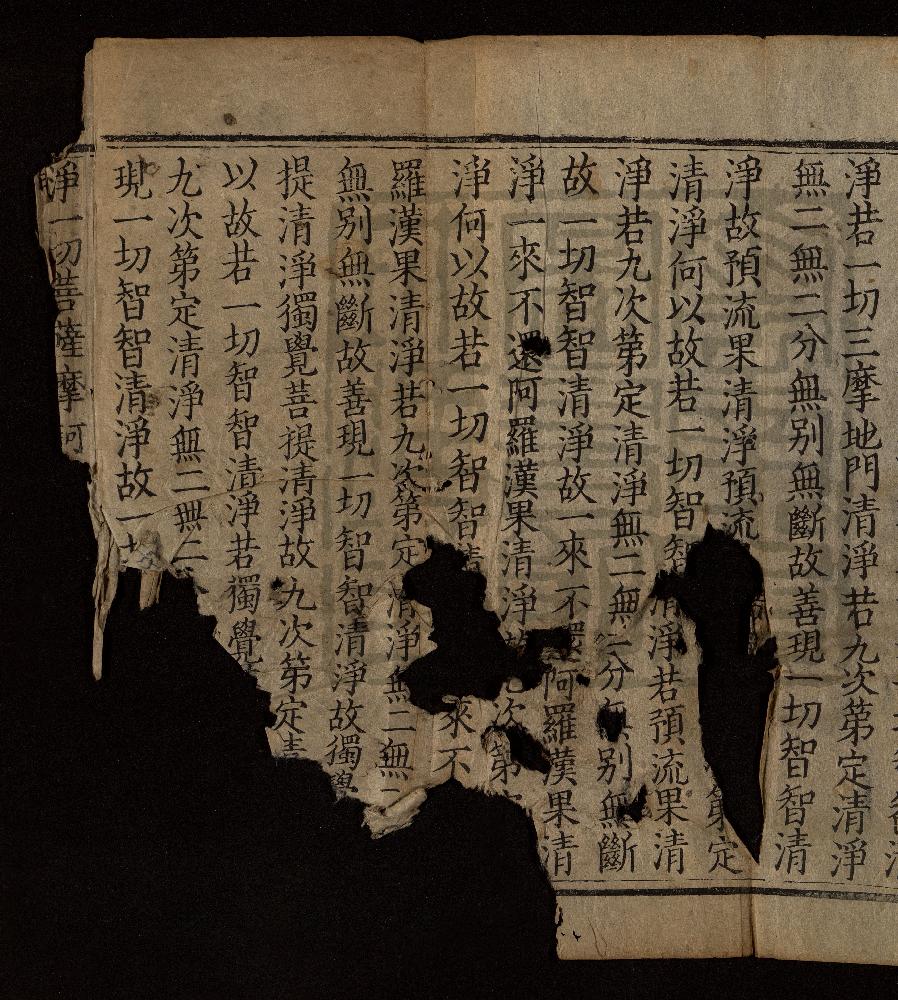 淨若一切三摩地門清淨若九次第定清淨
無二無二分無別無斷故善現一切智智清
淨故預流果清淨預流第定
清淨何以故若一切智智清淨若預流果清
淨若九次第定清淨無二無二分無別無斷
故一切智智清淨故一來不還阿羅漢果清
淨一來不還阿羅漢果清淨故九次第
淨何以故若一切智智清來不
羅漢果清淨若九次第定清淨無二無二
無別無斷故善現一切智智清淨故獨覺
提清淨獨覺菩提清淨故九次第定清
以故若一切智智清淨若獨覺
九次第定清淨無二無二
現一切智智清淨故一切
淨一切菩薩摩訶